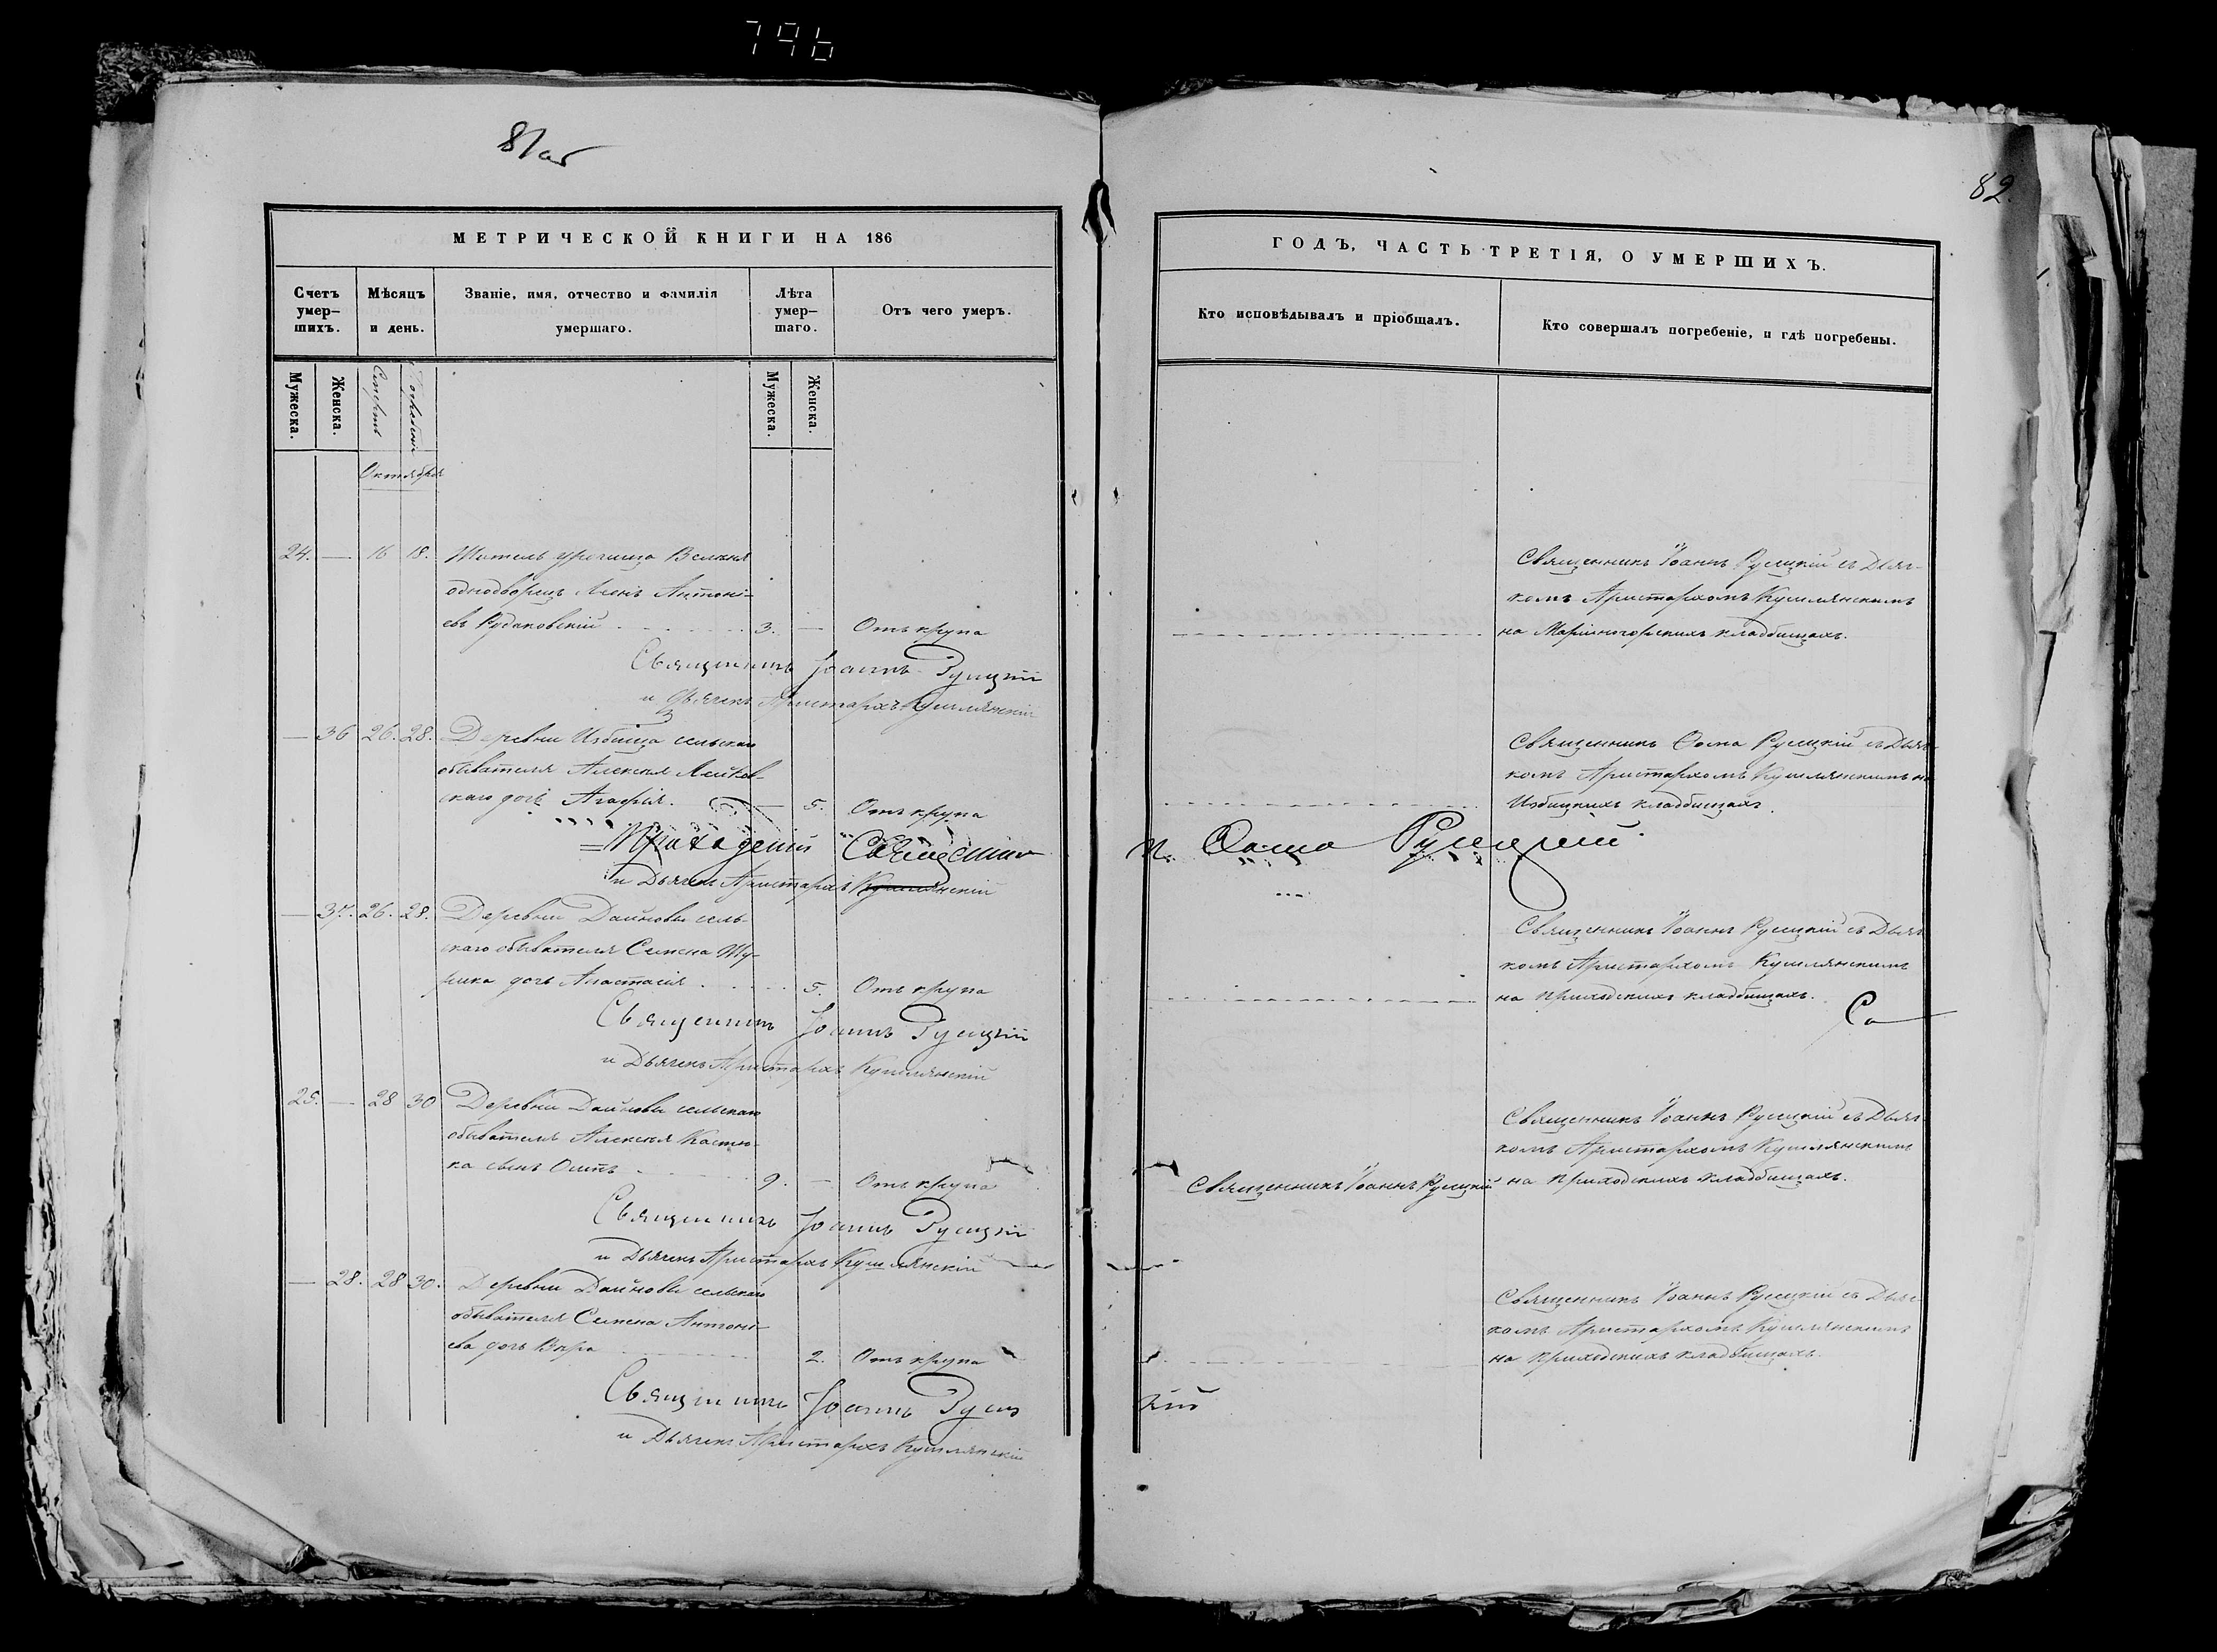 796
81 об
82.
МЕТРИЧЕСКОЙ КНИГИ НА 186
Счетъ умер-шихъ.
Мѣсяцъ и день.
Званіе, имя, отчество и фамилія умершаго.
Лѣта умер-шаго.
Отъ чего умеръ.
Мужеска.
Женска.
Смерти
Погребенія
Мужеска.
Женска.
Октября
24. — 16 18. Житель урочища
однодворецъ Антоні-
евъ 3. — Отъ крупа
Священникъ Іоаннъ Русецкій
и Дьячекъ Аристархъ Кушлянскій
— 36 26. 28. Деревни Избища сельскаго
обывателя Алексѣя
скаго дочь Агафія. — 5. Отъ крупа
Священник
и Дьячекъ Аристархъ Кушлянскій
— 37. 26. 28. Деревни Дайновы сель-
скаго обывателя Семена
дочь Анастасія 5. Отъ крупа
Священникъ Іоаннъ Русецкій
и Дьячекъ Аристархъ Кушлянскій
25. — 28 30 Деревни Дайновы сельскаго
обывателя Алексѣя Костю-
ка сынъ Осипъ 9. — Отъ крупа
Священникъ Іоаннъ Русецкій
и Дьячекъ Аристархъ Кушлянскій
— 28. 28 30. Деревни Дайновы сельскаго
обывателя Семена Антоні-
ева дочь Вѣра 2. Отъ крупа
Священникъ Іоаннъ Русец
и Дьячекъ Аристархъ Кушлянскій
ГОДЪ, ЧАСТЬ ТРЕТІЯ, О УМЕРШИХЪ.
Кто исповѣдывалъ и пріобщалъ.
Кто совершалъ погребеніе, и гдѣ погребены.
Священникъ Іоаннъ Русецкій съ Дьяч-
комъ Аристархомъ Кушлянскимъ
на Маріиногорскихъ кладбищахъ.
Священникъ Ѳома Русецкій съ Дьяч-
комъ Аристархомъ Кушлянскимъ на
Избицкихъ кладбищахъ.
Ѳома Русецкій
Священникъ Іоаннъ Русецкій съ Дьяч-
комъ Аристархомъ Кушлянскимъ
на приходскихъ кладбищахъ.
Са
Священникъ Іоаннъ Русецкій съ Дьяч-
комъ Аристархомъ Кушлянскимъ
Священникъ Іоаннъ Русецкій на приходскихъ кладбищахъ.
Священникъ Іоаннъ Русецкій съ Дьяч-
комъ Аристархомъ Кушлянскимъ
на приходскихъ кладбищахъ.
кій